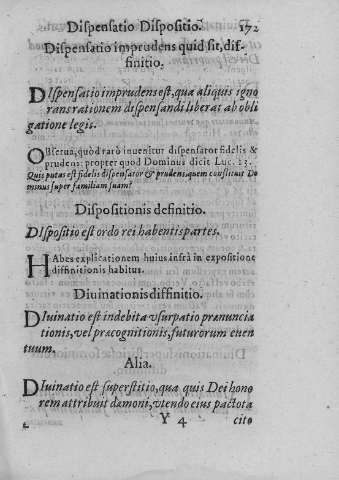 Dispensatio Dispositio. 172
Dispensatio imprudens quid sit, dif-
finitio.
DIspensatio imprudens est, qua aliquis igno
rans rationem dispensandi liberat ab obli
gatione legis.
OBserua, quòd rarò inuenitur dispensator fidelis &
prudens: propter quod Dominus dicit Luc. 23.
Quis putas est fidelis dispensator & prudens, quem constituit Do
minus super familiam suam?
Dispositionis definitio.
DIspositio est ordo rei habentis partes.
HAbes explicationem huius infrà in expositione
diffinitionis habitus.
Diuinationis diffinitio.
DIuinatio est indebita vsurpatio prænuncia
tionis, vel præcognitionis, futurorum euen
tuum.
Alia.
DIuinatio est superstitio, qua quis Dei hono
rem attribuit dæmoni, vtendo eius pacto ta
Y 4 cito